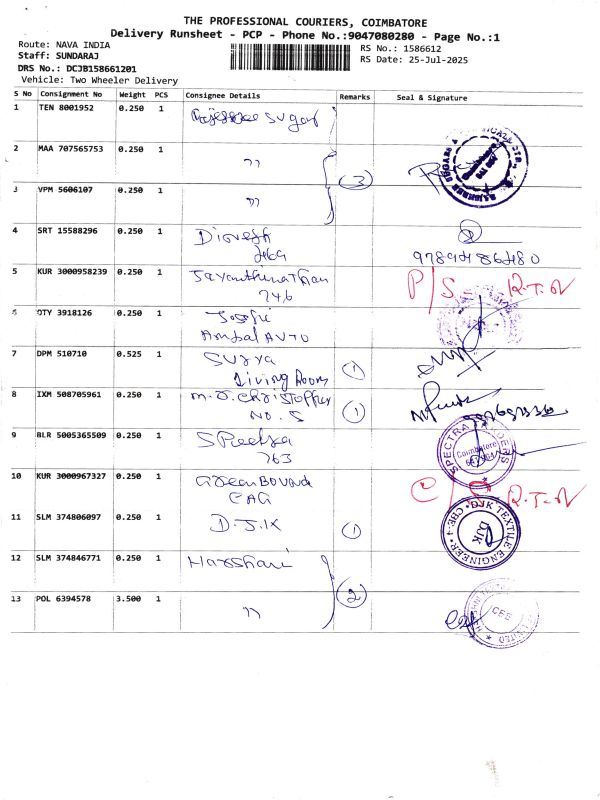 THE PROFESSIONAL COURIERS, COIMBATORE
Delivery Runsheet - PCP - Phone No.:9047080280 - Page No.:1
Route: NAVA INDIA
Staff: SUNDARAJ
DRS No.: DCJB158661201
Vehicle: Two Wheeler Delivery
RS No.: 1586612
RS Date: 25-Jul-2025
S No Consignment No Weight PCS Consignee Details Remarks Seal & Signature
1 TEN 8001952 0.250 1 Sugar
2 MAA 707565753 0.250 1 ,, 3
3 VPM 5606107 0.250 1 ,,
4 SRT 15588296 0.250 1
5 KUR 3000958239 0.250 1 Jayanthinathan P/S R.T.N
746
6 OTY 3918126 0.250 1
Ambal AUTO
7 DPM 510710 0.525 1 Surya 1
Living Room
8 IXM 508705961 0.250 1 M.J. Christopher 1
No. 5
9 BLR 5005365509 0.250 1 SPECTRA Coimbatore
763
10 KUR 3000967327 0.250 1 Green C/S R.T.N
11 SLM 374806097 0.250 1 D.J.K 1 DJK TEXTILE ENGINEER CBE-4 DJK
12 SLM 374846771 0.250 1 Harshani 2
13 POL 6394578 3.500 1 ,, CBE LIMITED